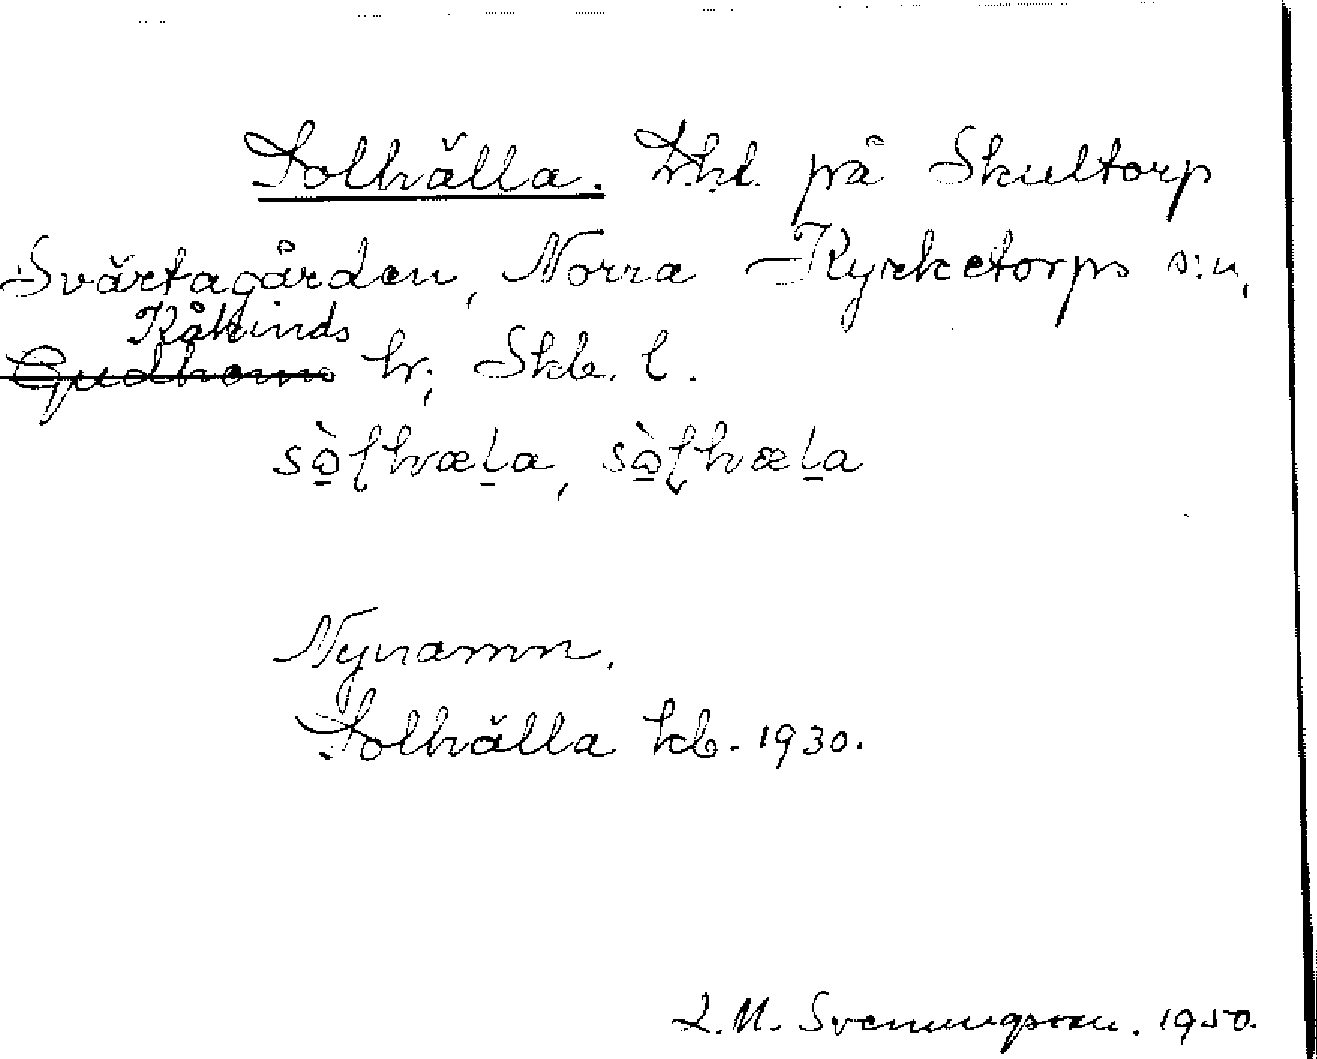 Solhälla. Lht. på Skultorp
Svärtagården, Norra Kyrketorps s:n,
Kåkinds
Gudhems hr, Skb. l.
Nynamn.
Solhälla kb. 1930.
L. M. Svenungsson. 1950.